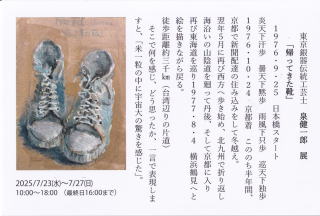 東京銀器伝統工芸士　泉健一郎　展
「帰ってきた靴」
1976・9・25　日本橋スタート
炎天下汗歩　曇天下黙歩　雨風下只歩　巡天下独歩
1976・10・24　京都着　このち半年間、
京都で新聞配達の住み込みをして冬越え。
翌年5月に再び西方へ歩き始め、北九州で折り返し
海沿いの山陰道を廻って丹後。そして京都に入り
再び東海道を辿り1977・8・4　横浜鶴見へと
絵を描きながら戻る。
徒歩距離約三千㎞（台湾辺りの片道）
そこで何を感じ、どう思ったか、一言で表現しま
すと、「米一粒の中に宇宙大の驚きを感じた」。
2025/7/23(水)～7/27(日)
10:00～18:00　(最終日16:00まで)